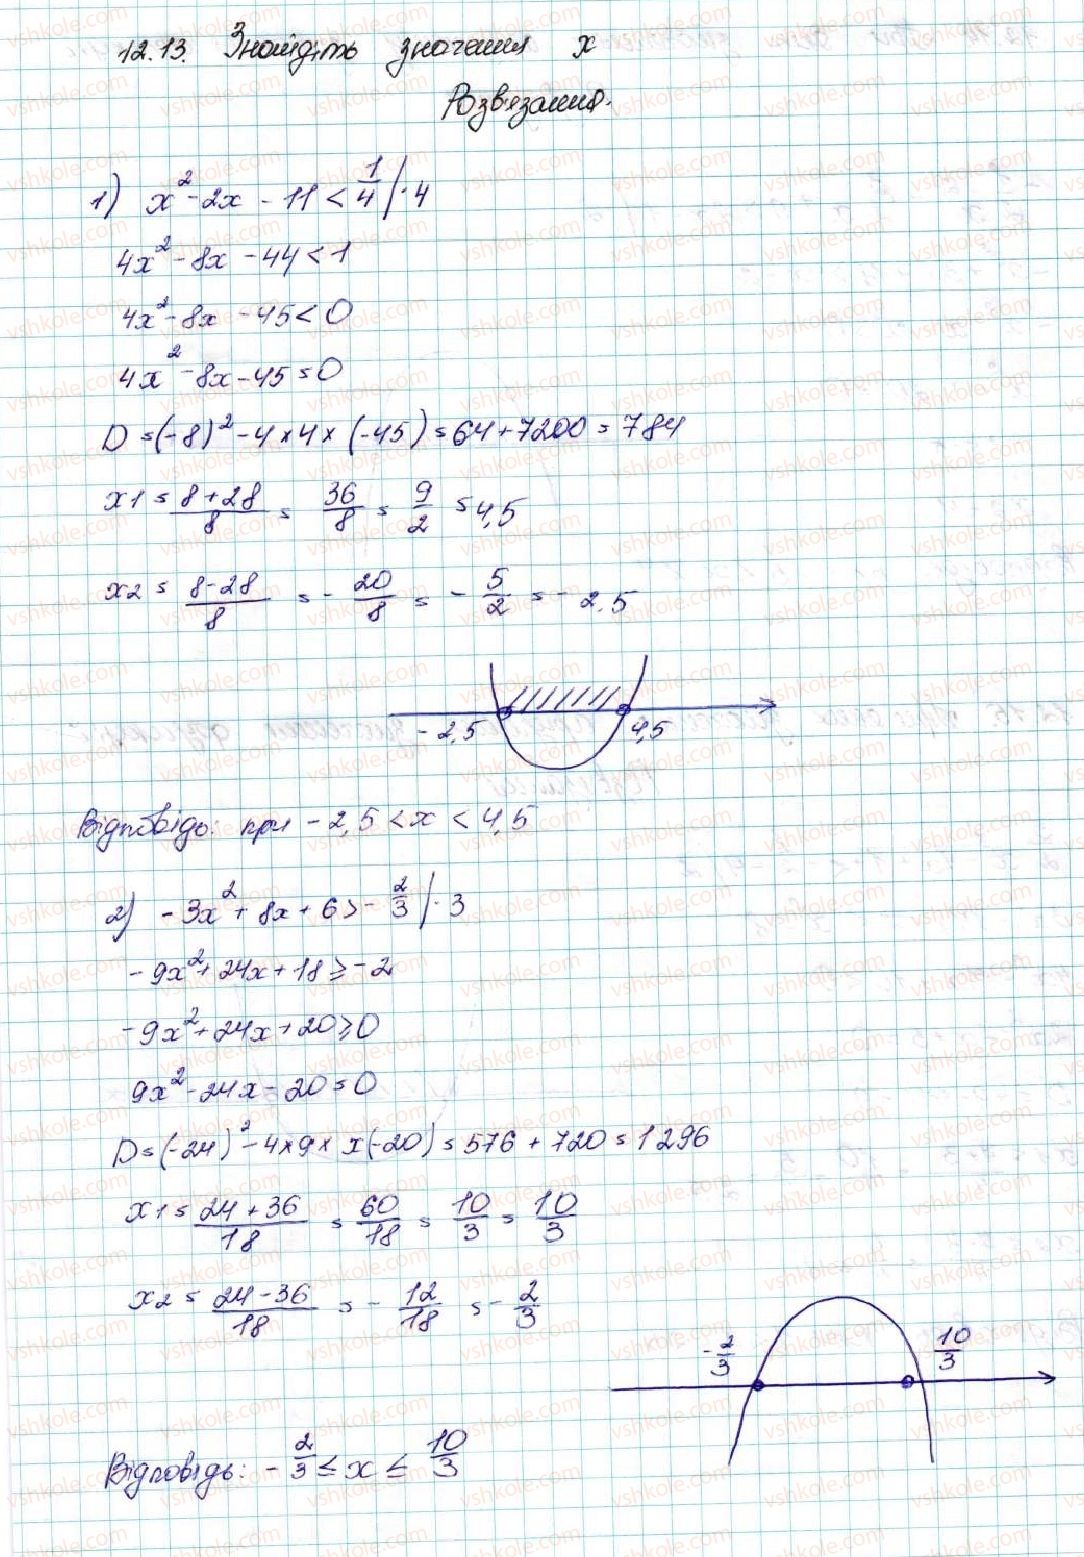 12.13. Знайдіть значення x
Розв'язання.
1) x² - 2x - 11 < 1/4 | · 4
4x² - 8x - 44 < 1
4x² - 8x - 45 < 0
4x² - 8x - 45 = 0
D = (-8)² - 4 × 4 × (-45) = 64 + 7200 = 784
x1 = (8 + 28)/8 = 36/8 = 9/2 = 4,5
x2 = (8 - 28)/8 = - 20/8 = - 5/2 = - 2,5
- 2,5 4,5
Відповідь: при - 2,5 < x < 4,5
2) - 3x² + 8x + 6 > - 2/3 | · 3
- 9x² + 24x + 18 ≥ - 2
- 9x² + 24x + 20 ≥ 0
9x² - 24x - 20 = 0
D = (-24)² - 4 × 9 × x (-20) = 576 + 720 = 1296
x1 = (24 + 36)/18 = 60/18 = 10/3 = 10/3
x2 = (24 - 36)/18 = - 12/18 = - 2/3
- 2/3 10/3
Відповідь: - 2/3 ≤ x ≤ 10/3